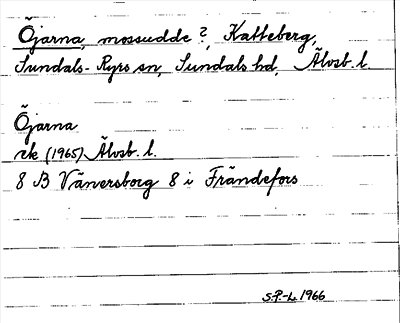 Öjarna, mossudde?, Katteberg,
Sundals-Ryrs sn, Sundals hd, Älvsb. l.
Öjarna
rk (1965) Älvsb. l.
8 B Vänersborg 8 i Frändefors
S.P.-L. 1966